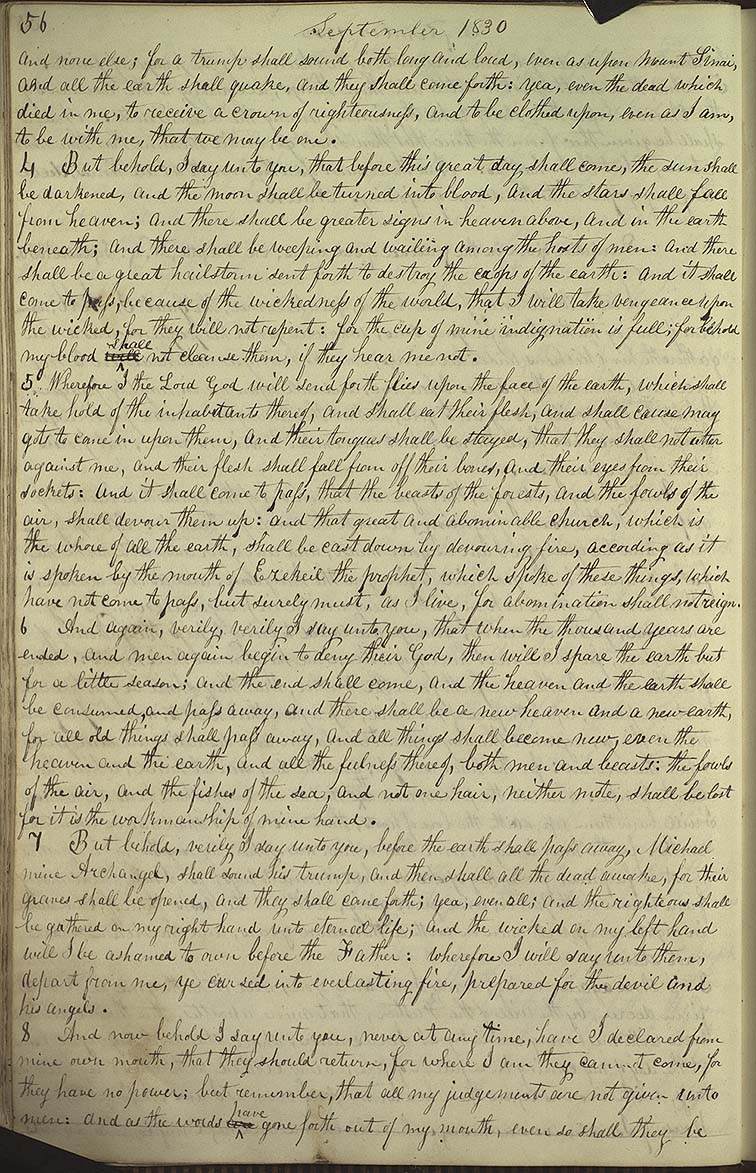 56
September 1830
and none else; for a trump shall sound both long and loud, even as upon mount Sinai,
and all the earth shall quake, and they shall come forth: yea, even the dead which
died in me, to receive a crown of righteousness, and to be clothed upon, even as I am,
to be with me, that we may be one.
4 But behold, I say unto you, that before this great day shall come, the sun shall
be darkened, and the moon shall be turned into blood, and the stars shall fall
from heaven; and there shall be greater signs in heaven above, and in the earth
beneath; and there shall be weeping and wailing among the hosts of men: and there
shall be a great hailstorm sent forth to destroy the crops of the earth: and it shall
come to pass, because of the wickedness of the world, that I will take vengeance upon
the wicked, for they will not repent: for the cup of mine indignation is full; for behold
my blood will shall not cleanse them, if they hear me not.
5 Wherefore I the Lord God will send forth flies upon the face of the earth, which shall
take hold of the inhabitants thereof, and shall eat their flesh, and shall cause mag
gots to come in upon them, and their tongues shall be stayed, that they shall not utter
against me, and their flesh shall fall from off their bones, and their eyes from their
sockets: and it shall come to pass, that the beasts of the forests, and the fowls of the
air, shall devour them up: and that great and abominable church, which is
the whore of all the earth, shall be cast down by devouring fire, according as it
is spoken by the mouth of Ezekeil the prophet, which spoke of these things, which
have not come to pass, but surely must, as I live, for abomination shall not reign.
6 And again, verily, verily I say unto you, that when the thousand years are
ended, and men again begin to deny their God, then will I spare the earth but
for a little season; and the end shall come, and the heaven and the earth shall
be consumed, and pass away, and there shall be a new heaven and a new earth,
for all old things shall pass away, and all things shall become new, even the
heaven and the earth, and all the fulness thereof, both men and beasts: the fowls
of the air, and the fishes of the sea, and not one hair, neither mote, shall be lost
for it is the workmanship of mine hand.
7 But behold, verily I say unto you, before the earth shall pass away, Michael
mine Archangel, shall sound his trump, and then shall all the dead awake, for their
graves shall be opened, and they shall come forth; yea, even all; and the righteous shall
be gathered on my right hand unto eternal life; and the wicked on my left hand
will I be ashamed to own before the Father: wherefore I will say unto them,
depart from me, ye cursed into everlasting fire, prepared for the devil and
his angels.
8 And now behold I say unto you, never at any time, have I declared from
mine own mouth, that they should return, for where I am they cannot come, for
they have no power; but remember, that all my judgements are not given unto
men: and as the words have gone forth out of my mouth, even so shall they be